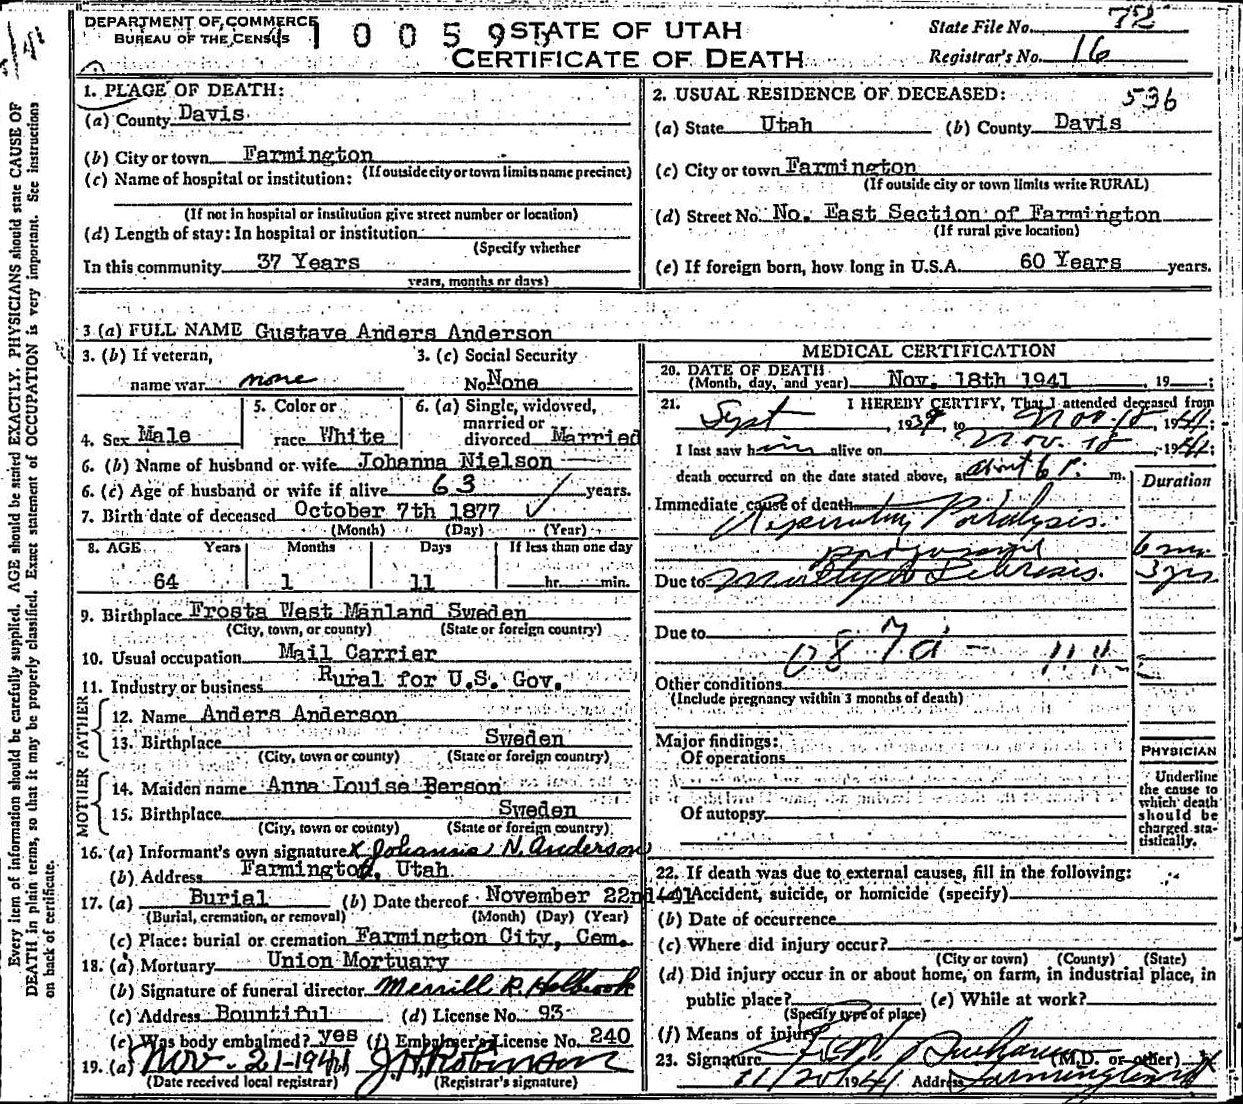 DEPARTMENT OF COMMERCE
BUREAU OF THE CENSUS
10059
STATE OF UTAH
CERTIFICATE OF DEATH
State File No. 72
Registrar's No. 16
1. PLACE OF DEATH:
(a) County Davis
(b) City or town Farmington
(If outside city or town limits name precinct)
(c) Name of hospital or institution:
(If not in hospital or institution give street number or location)
(d) Length of stay: In hospital or institution
(Specify whether
In this community 37 Years
years, months or days)
2. USUAL RESIDENCE OF DECEASED: 536
(a) State Utah (b) County Davis
(c) City or town Farmington
(If outside city or town limits write RURAL)
(d) Street No. No. East Section of Farmington
(If rural give location)
(e) If foreign born, how long in U.S.A. 60 Years years.
3 (a) FULL NAME Gustave Anders Anderson
3. (b) If veteran,
name war none
3. (c) Social Security
No. None
4. Sex Male
5. Color or
race White
6. (a) Single, widowed,
married or
divorced Married
6. (b) Name of husband or wife Johanna Nielson
6. (c) Age of husband or wife if alive 63 years.
7. Birth date of deceased October 7th 1877
(Month) (Day) (Year)
8. AGE Years Months Days If less than one day
64 1 11 hr. min.
9. Birthplace Frosta West Manland Sweden
(City, town, or county) (State or foreign country)
10. Usual occupation Mail Carrier
11. Industry or business Rural for U.S. Gov.
FATHER
12. Name Anders Anderson
13. Birthplace Sweden
(City, town or county) (State or foreign country)
MOTHER
14. Maiden name Anna Louise Berson
15. Birthplace Sweden
(City, town or county) (State or foreign country)
16. (a) Informant's own signature x Johanna N. Anderson
(b) Address Farmington, Utah
17. (a) Burial (b) Date thereof November 22nd 41
(Burial, cremation, or removal) (Month) (Day) (Year)
(c) Place: burial or cremation Farmington City, Cem.
18. (a) Mortuary Union Mortuary
(b) Signature of funeral director Merrill R. Holbrook
(c) Address Bountiful (d) License No. 93
(e) Was body embalmed? yes (f) Embalmer's License No. 240
19. (a) Nov. 21-1941 J.H. Robinson
(Date received local registrar) (Registrar's signature)
MEDICAL CERTIFICATION
20. DATE OF DEATH
(Month, day, and year) Nov. 18th 1941, 19 ;
21. I HEREBY CERTIFY, That I attended deceased from
Sept, 1939, to Nov. 18, 1941;
I last saw him alive on Nov. 18, 1941;
death occurred on the date stated above, at about 6 P. m.
Duration
Immediate cause of death
Respiratory Paralysis.
6 mo.
Due to Multiple Sclerosis. 3 yrs
Due to
087a
Other conditions
(Include pregnancy within 3 months of death)
Major findings:
Of operations
Of autopsy
PHYSICIAN
Underline
the cause to
which death
should be
charged sta-
tistically.
22. If death was due to external causes, fill in the following:
(a) Accident, suicide, or homicide (specify)
(b) Date of occurrence
(c) Where did injury occur?
(City or town) (County) (State)
(d) Did injury occur in or about home, on farm, in industrial place, in
public place? (e) While at work?
(Specify type of place)
(f) Means of injury
23. Signature (M.D. or other)
11/20/1941 Address Farmington
Every item of information should be carefully supplied. AGE should be stated EXACTLY. PHYSICIANS should state CAUSE OF
DEATH in plain terms, so that it may be properly classified. Exact statement of OCCUPATION is very important. See instructions
on back of certificate.